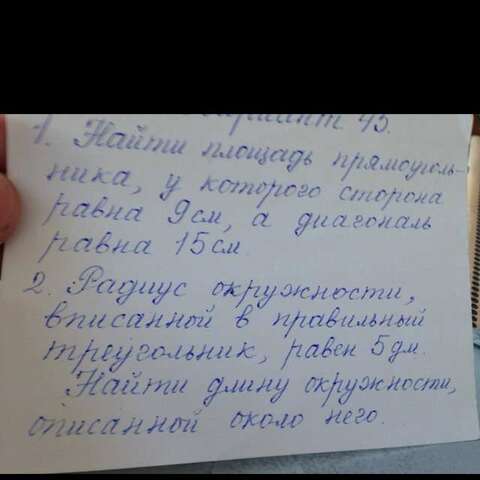 Вариант 45.
1. Найти площадь прямоуголь-
ника, у которого сторона
равна 9см, а диагональ
равна 15см.
2. Радиус окружности,
вписанной в правильный
треугольник, равен 5дм.
Найти длину окружности,
описанной около него.